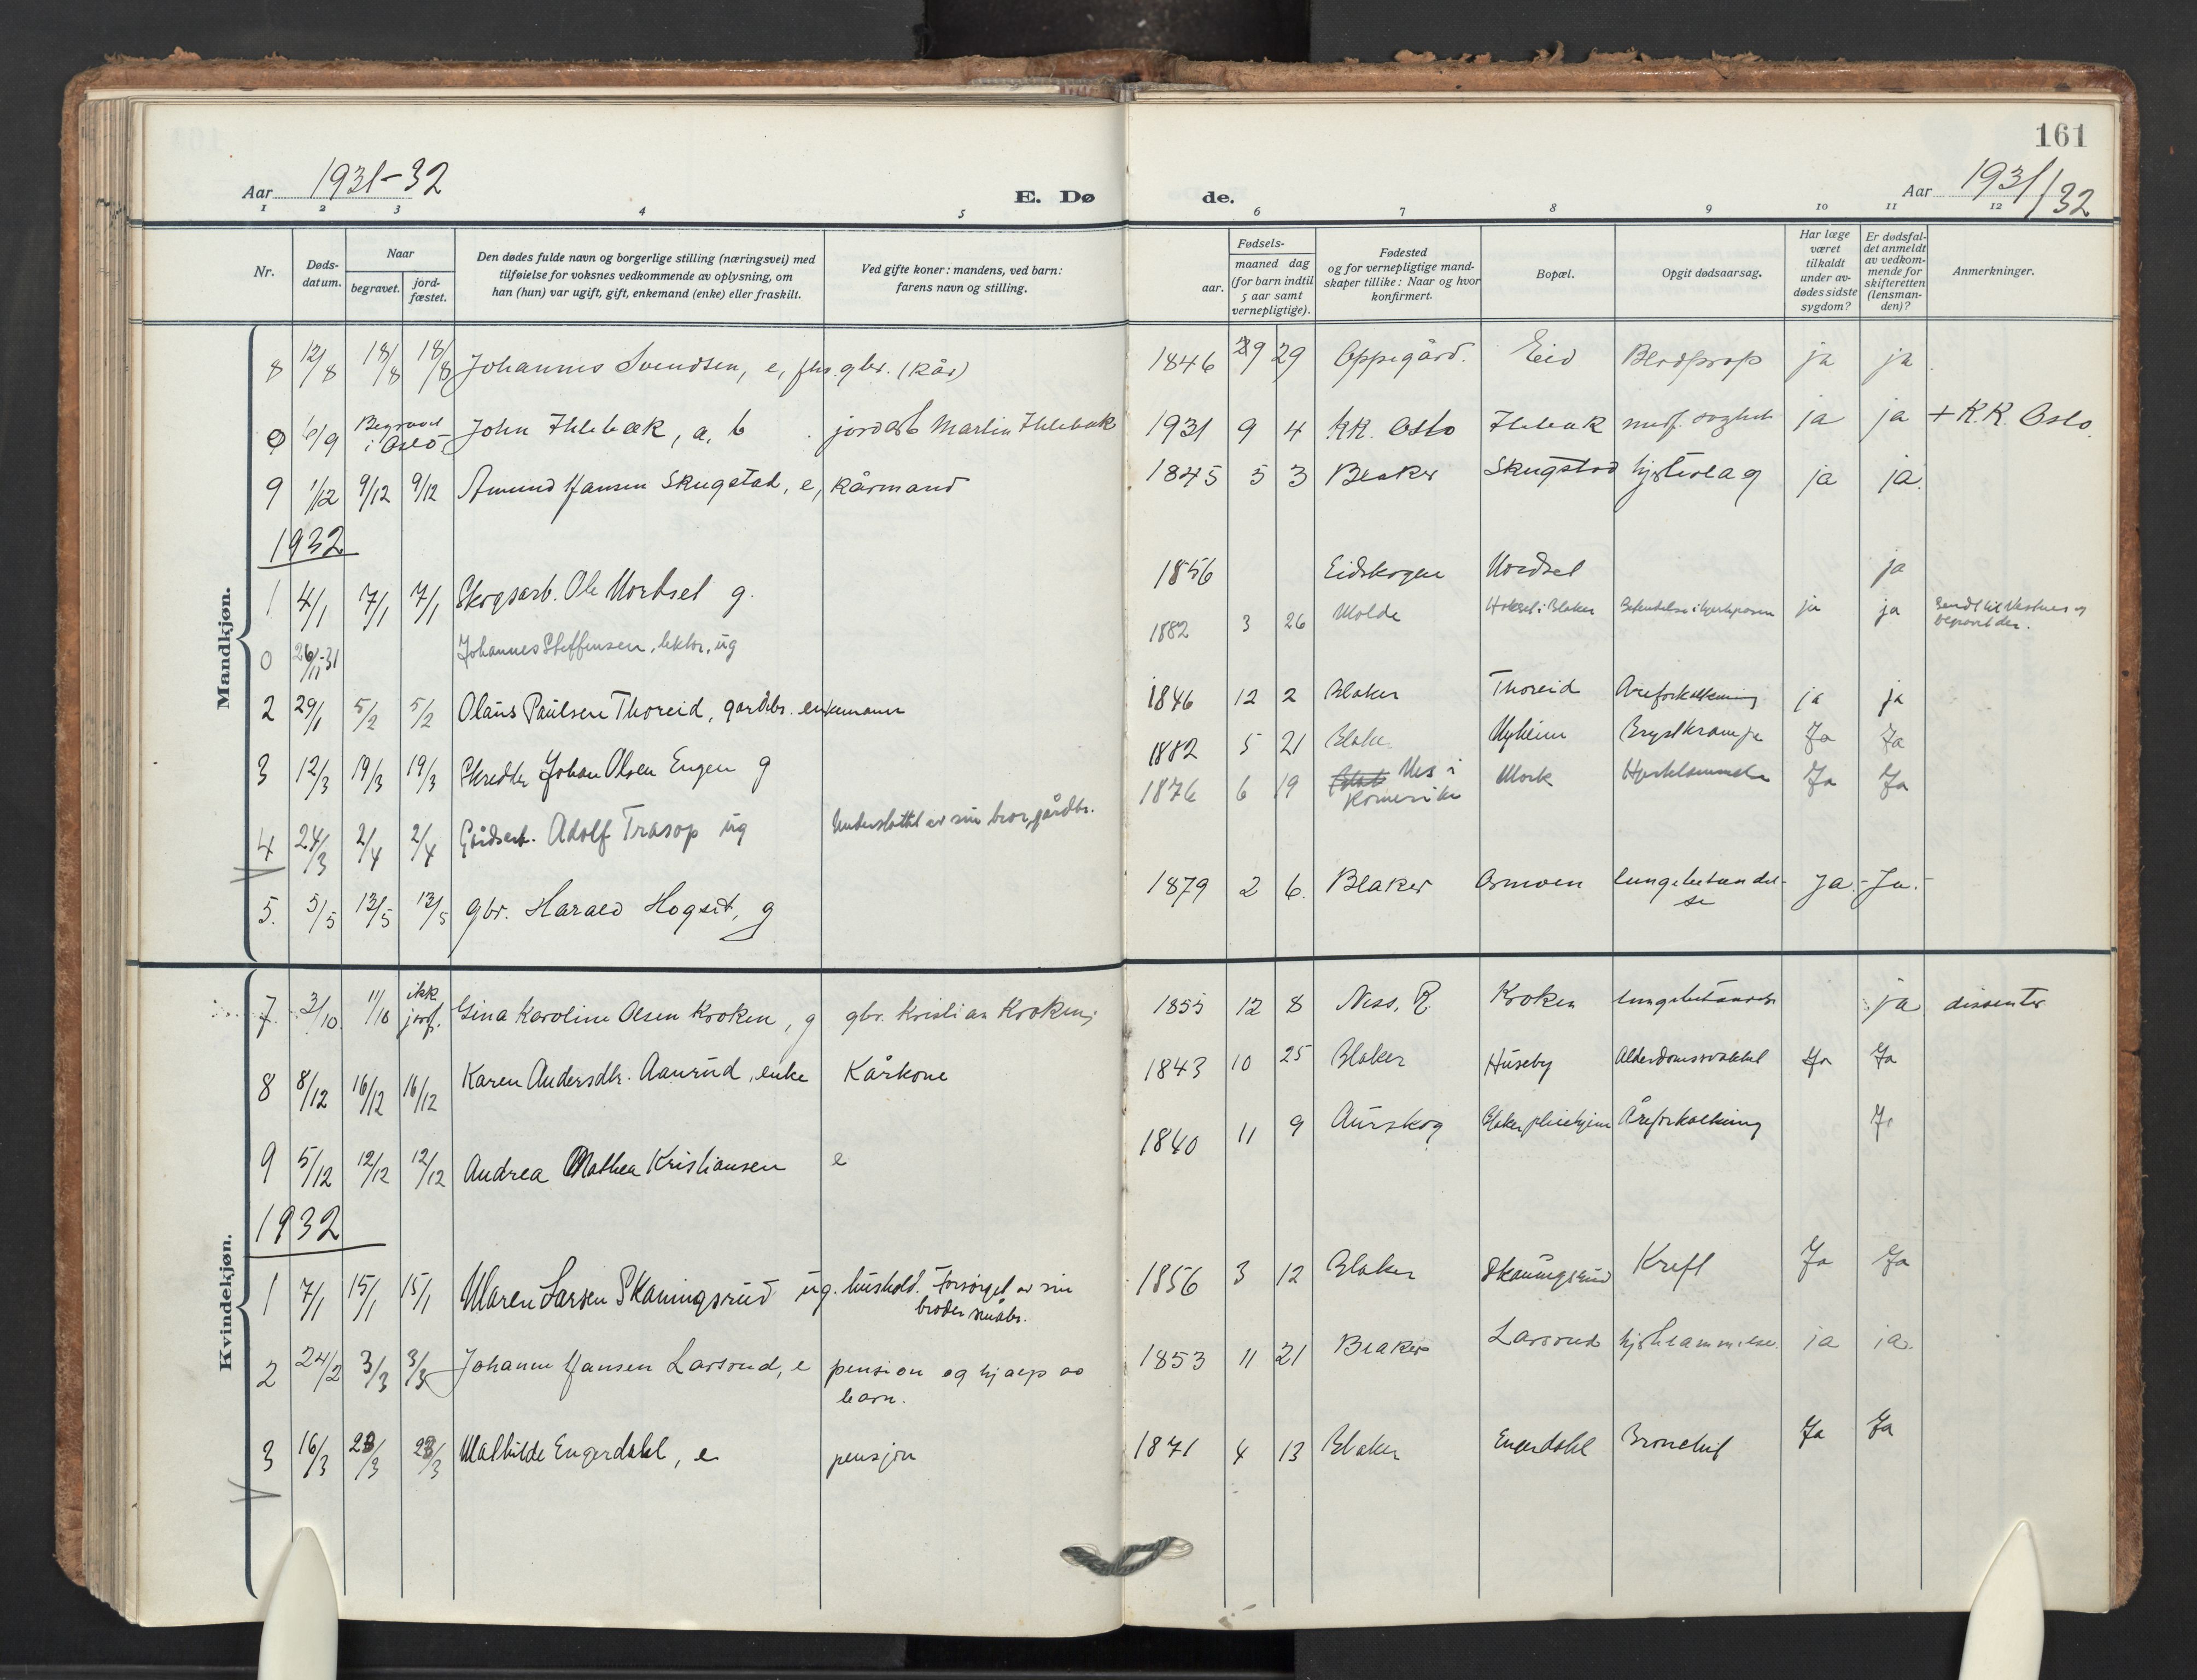 161
Aar 1931-32
E. Dø
de.
Aar 1931/32
1 2 3 4 5 6 7 8 9 10 11 12
Nr.
Døds-
datum.
Naar
begravet.
jord-
fæstet.
Den dødes fulde navn og borgerlige stilling (næringsvei) med
tilføielse for voksnes vedkommende av oplysning, om
han (hun) var ugift, gift, enkemand (enke) eller fraskilt.
Ved gifte koner: mandens, ved barn:
farens navn og stilling.
Fødsels-
aar.
maaned dag
(for barn indtil
5 aar samt
vernepligtige).
Fødested
og for vernepligtige mand-
skaper tillike: Naar og hvor
konfirmert.
Bopæl.
Opgit dødsaarsag.
Har læge
været
tilkaldt
under av-
dødes sidste
sygdom?
Er dødsfal-
det anmeldt
av vedkom-
mende for
skifteretten
(lensman-
den)?
Anmerkninger.
Mandkjøn.
8 12/8 18/8 18/8 Johannes Svendsen, e, fhv. gbr. (kår) 1846 29 Oppegård. Eid ja ja
0 6/9 Begravet
i Oslo John Ihlebæk, a. b jordarb Marlin Ihlebæk 1931 9 4 KK. Oslo Ihlebæk medf. ja ja + K.K. Oslo.
9 1/12 9/12 9/12 Amund Hansen Skugstad, e, kårmand 1845 5 3 Blaker Skugstad hjerteslag ja ja.
1932
1 4/1 7/1 7/1 Skogsarb. Ole Nordset g. 1856 Eidskogen Nordset ja
0 26/11-31 Johannes Steffensen, lektor, ug 1882 3 26 Molde i Blaker ja ja Sendt til Vestnes og
begravet der.
2 29/1 5/2 5/2 Olaus Paulsen Thoreid, gardbr. enkemann 1846 12 2 Blaker Thoreid Åreforkalkning ja ja
3 12/3 19/3 19/3 Skredder Johan Olsen Engen g 1882 5 21 Blaker Nyheim Brystkrampe Ja Ja
4 24/3 2/4 2/4 Gårdsarb. Adolf Trasop ug Understøttet av sin bror, gårdbr. 1876 6 19 Nes i
Romerike Mork Hjertelammelse Ja Ja
5. 5/5 13/5 13/5 gbr. Harald Hogset, g 1879 2 6. Blaker Osmoen lungebetændel-
se Ja.- Ja.-
Kvindekjøn.
7. 3/10. 11/10 ikk
jordf. Gina Karoline Olsen Kroken, g gbr. Kristian Kroken; 1855 12 8 Ness, R. Kroken lungebetændelse ja dissenter
8 8/12 16/12 16/12 Karen Andersdtr. Aanrud, enke Kårkone 1843 10 25 Blaker Huseby Alderdomssvakhet Ja Ja
9 5/12 12/12 12/12 Andrea Mathea Kristiansen e 1840 11 9 Aurskog Blaker pleiehjem Åreforkalkning Ja
1932
1 7/1 15/1 15/1 Maren Larsen Skaningsrud ug. hushold. Forsørget av sin
broder småbr. 1856 3 12 Blaker Skaningsrud Kreft Ja Ja
2 24/2 3/3 3/3 Johanne Hansen Larsrud, e pension og hjælp av
barn. 1853 11 21 Blaker Larsrud hjertelammelse. ja ja.
3 16/3 23/3 23/3 Mathilde Engerdahl, e pensjon 1871 4 13 Blaker Engerdahl Bronchit Ja Ja